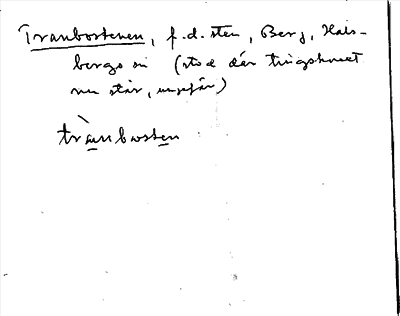 Tranbostenen, f.d. sten, Berg, Hals-
bergs sn (stod där tingshuset
nu står, ungefär)
trànbosten